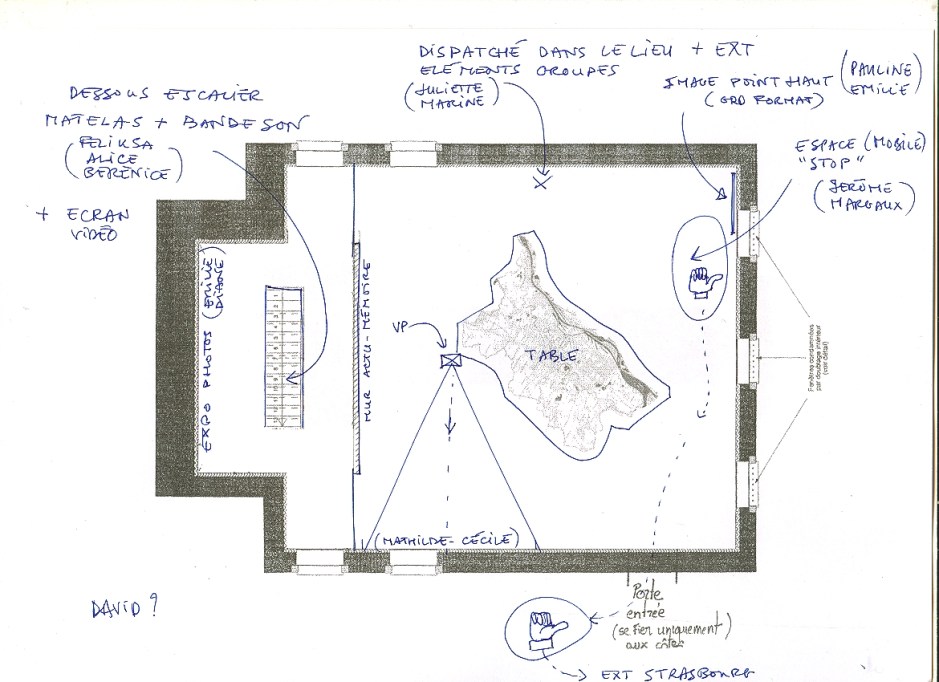 DISPATCHÉ DANS LE LIEU + EXT
ELÉMENTS GROUPES
(JULIETTE
MARINE)
IMAGE POINT HAUT
(GRD FORMAT)
(PAULINE
EMILIE)
DESSOUS ESCALIER
MATELAS + BANDE SON
(FELIKSA
ALICE
BERENICE)
+ ECRAN
VIDÉO
ESPACE (MOBILE)
"STOP"
(JERÔME
MARGAUX)
EXPO PHOTOS (EMILIE
DIANE)
MUR ACTU-MÉMOIRE
VP
TABLE
Fenêtres condamnées
par doublage intérieur
(voir détail)
(MATHILDE-CÉCILE)
DAVID ?
Porte
entrée
(se fier uniquement)
aux côtes
EXT STRASBOURG